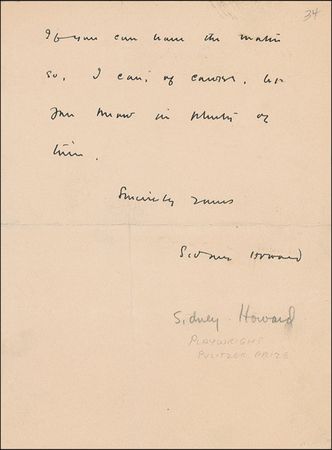 34
If you can leave the matter
so, I can, of course, let
you know in plenty of
time.
Sincerely yours
Sidney Howard
Sidney Howard
PLAYWRIGHT
PULITZER PRIZE